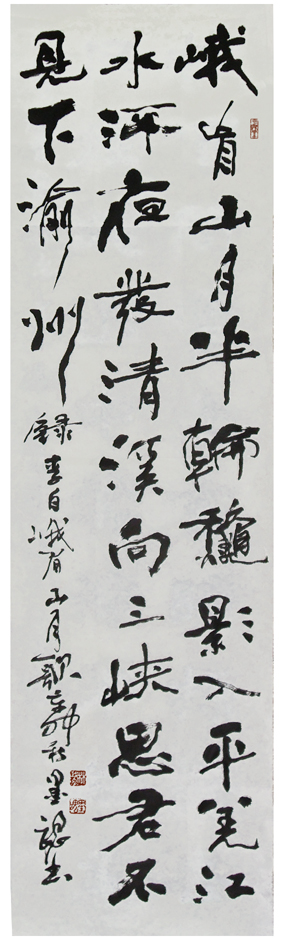 峨眉山月半輪龝影入平羌江
水流夜發清溪向三峽思君不
見下渝州
錄李白峨眉山月歌辛卯秋墨書